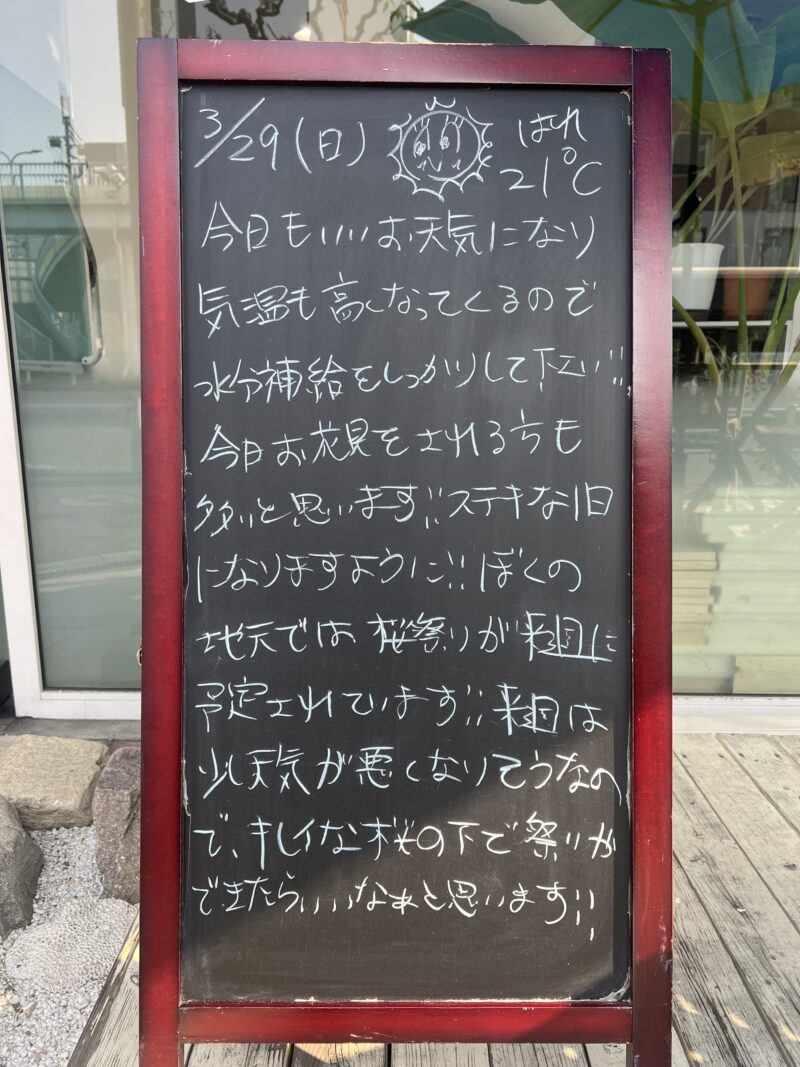 3/29(日) はれ
21℃
今日もいいお天気になり
気温も高くなってくるので
水分補給をしっかりして下さい!!
今日お花見をされる方も
多いと思います!!ステキな1日
になりますように!!ぼくの
地元では桜祭りが来週に
予定されています!!来週は
少し天気が悪くなりそうなの
で、キレイな桜の下で祭りが
できたらいいなぁと思います!!